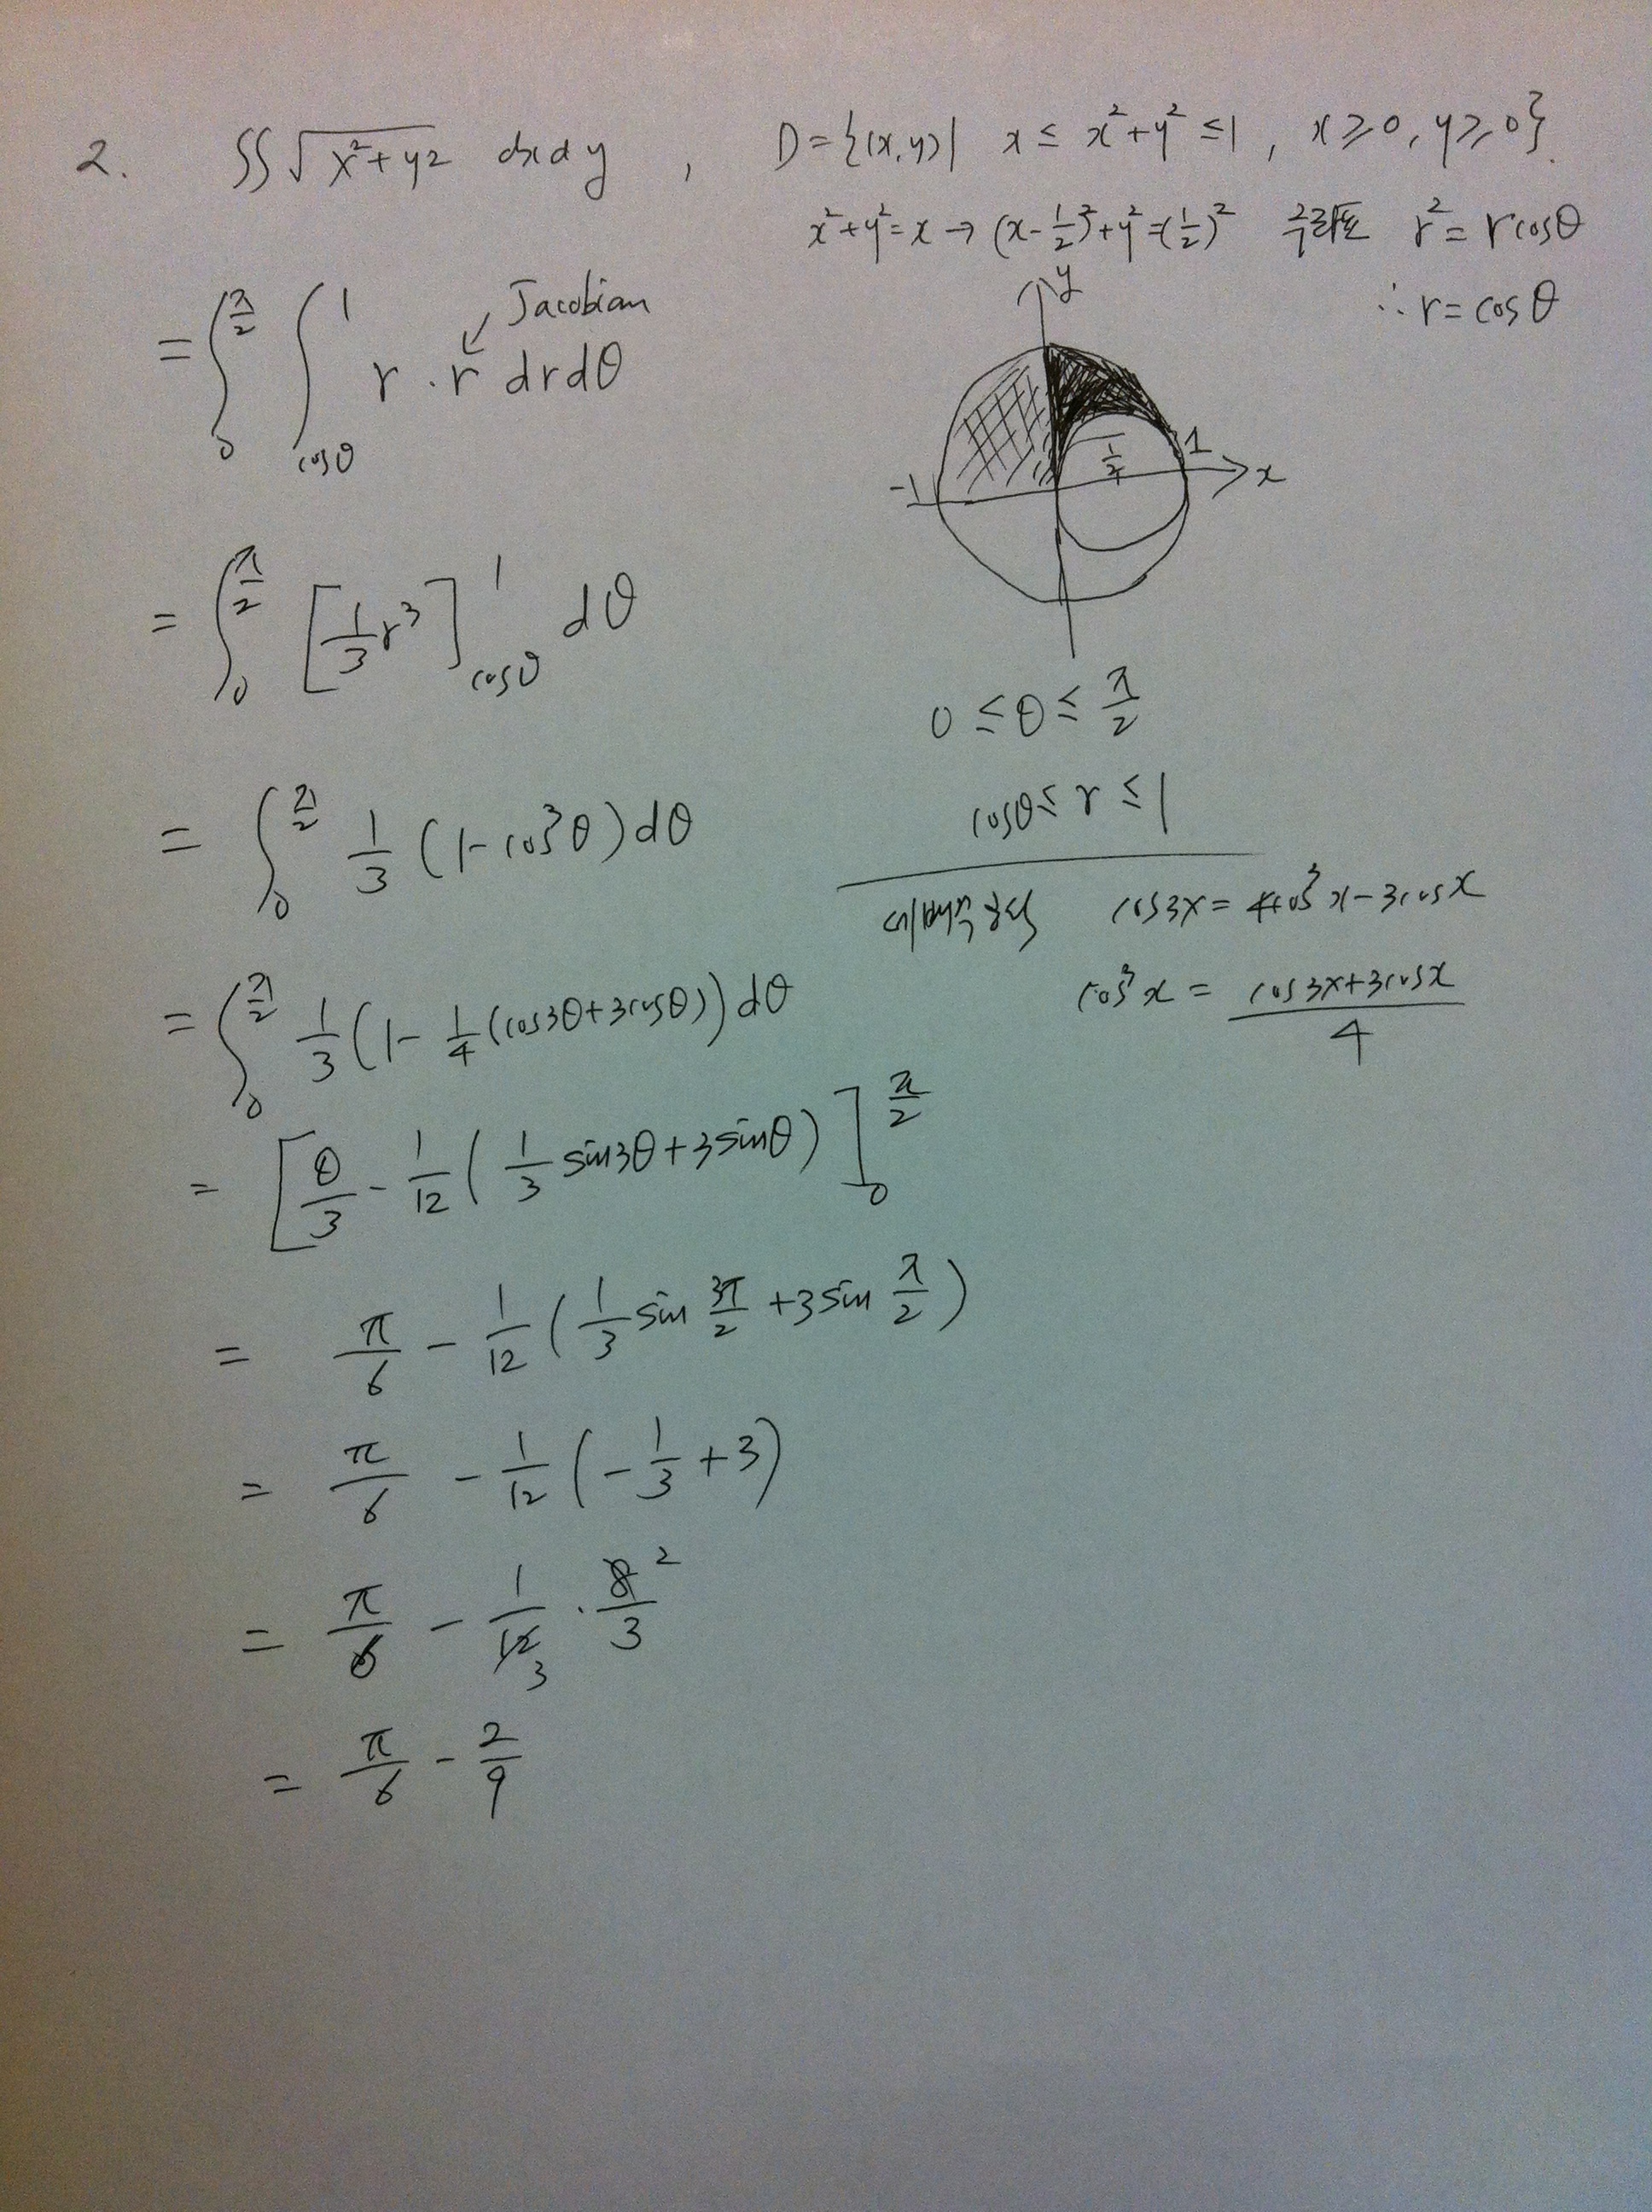 2. ∬√(x²+y²) dxdy , D={(x,y)| x ≤ x²+y² ≤1 , x≥0, y≥0}.
x²+y²=x → (x-1/2)²+y²=(1/2)² r²= rcosθ
∴ r= cosθ
= ∫_0^{π/2} ∫_{cosθ}^{1} r·r drdθ
Jacobian
y
1
1/2
-1
x
= ∫_0^{π/2} [1/3 r³]_{cosθ}^{1} dθ
0 ≤ θ ≤ π/2
cosθ ≤ r ≤ 1
= ∫_0^{π/2} 1/3 (1-cos³θ)dθ
세배각공식 cos3x= 4cos³x-3cosx
cos³x = (cos3x+3cosx)/4
= ∫_0^{π/2} 1/3(1- 1/4(cos3θ+3cosθ))dθ
= [θ/3 - 1/12(1/3 sin3θ+3sinθ)]_0^{π/2}
= π/6 - 1/12(1/3 sin 3π/2 +3sin π/2)
= π/6 - 1/12(-1/3+3)
= π/6 - 1/12 3 · 8/3 2
= π/6 - 2/9